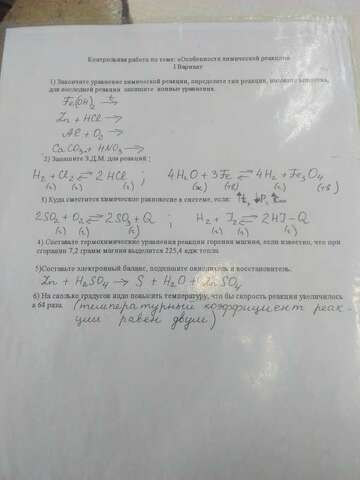 Контрольная работа по теме: «Особенности химической реакции»
1 Вариант
1) Закончите уравнение химической реакции, определите тип реакции, назовите вещества,
для последней реакции запишите ионные уравнения.
Fe(OH)₂ →
Zn + HCl →
Al + O₂ →
CaCO₃ + HNO₃ →
2) Запишите З.Д.М. для реакций ;
H₂ + Cl₂ ⇄ 2HCl ; 4H₂O + 3Fe ⇄ 4H₂ + Fe₃O₄
(г) (г) (г) (ж) (тв) (г) (тв)
3) Куда сместится химическое равновесие в системе, если: ↑t, ↓P, ↑C
2SO₂ + O₂ ⇄ 2SO₃ + Q ; H₂ + I₂ ⇄ 2HI - Q
(г) (г) (г) (г) (г) (г)
4) Составьте термохимические уравнения реакции горения магния, если известно, что при
сгорании 7,2 грамм магния выделится 225,4 кдж тепла.
5)Составьте электронный баланс, подпишите окислитель и восстановитель:
Zn + H₂SO₄ → S + H₂O + ZnSO₄
6) На сколько градусов надо повысить температуру, что бы скорость реакции увеличилось
в 64 раза. (температурный коэффициент реак-
ции равен двум)